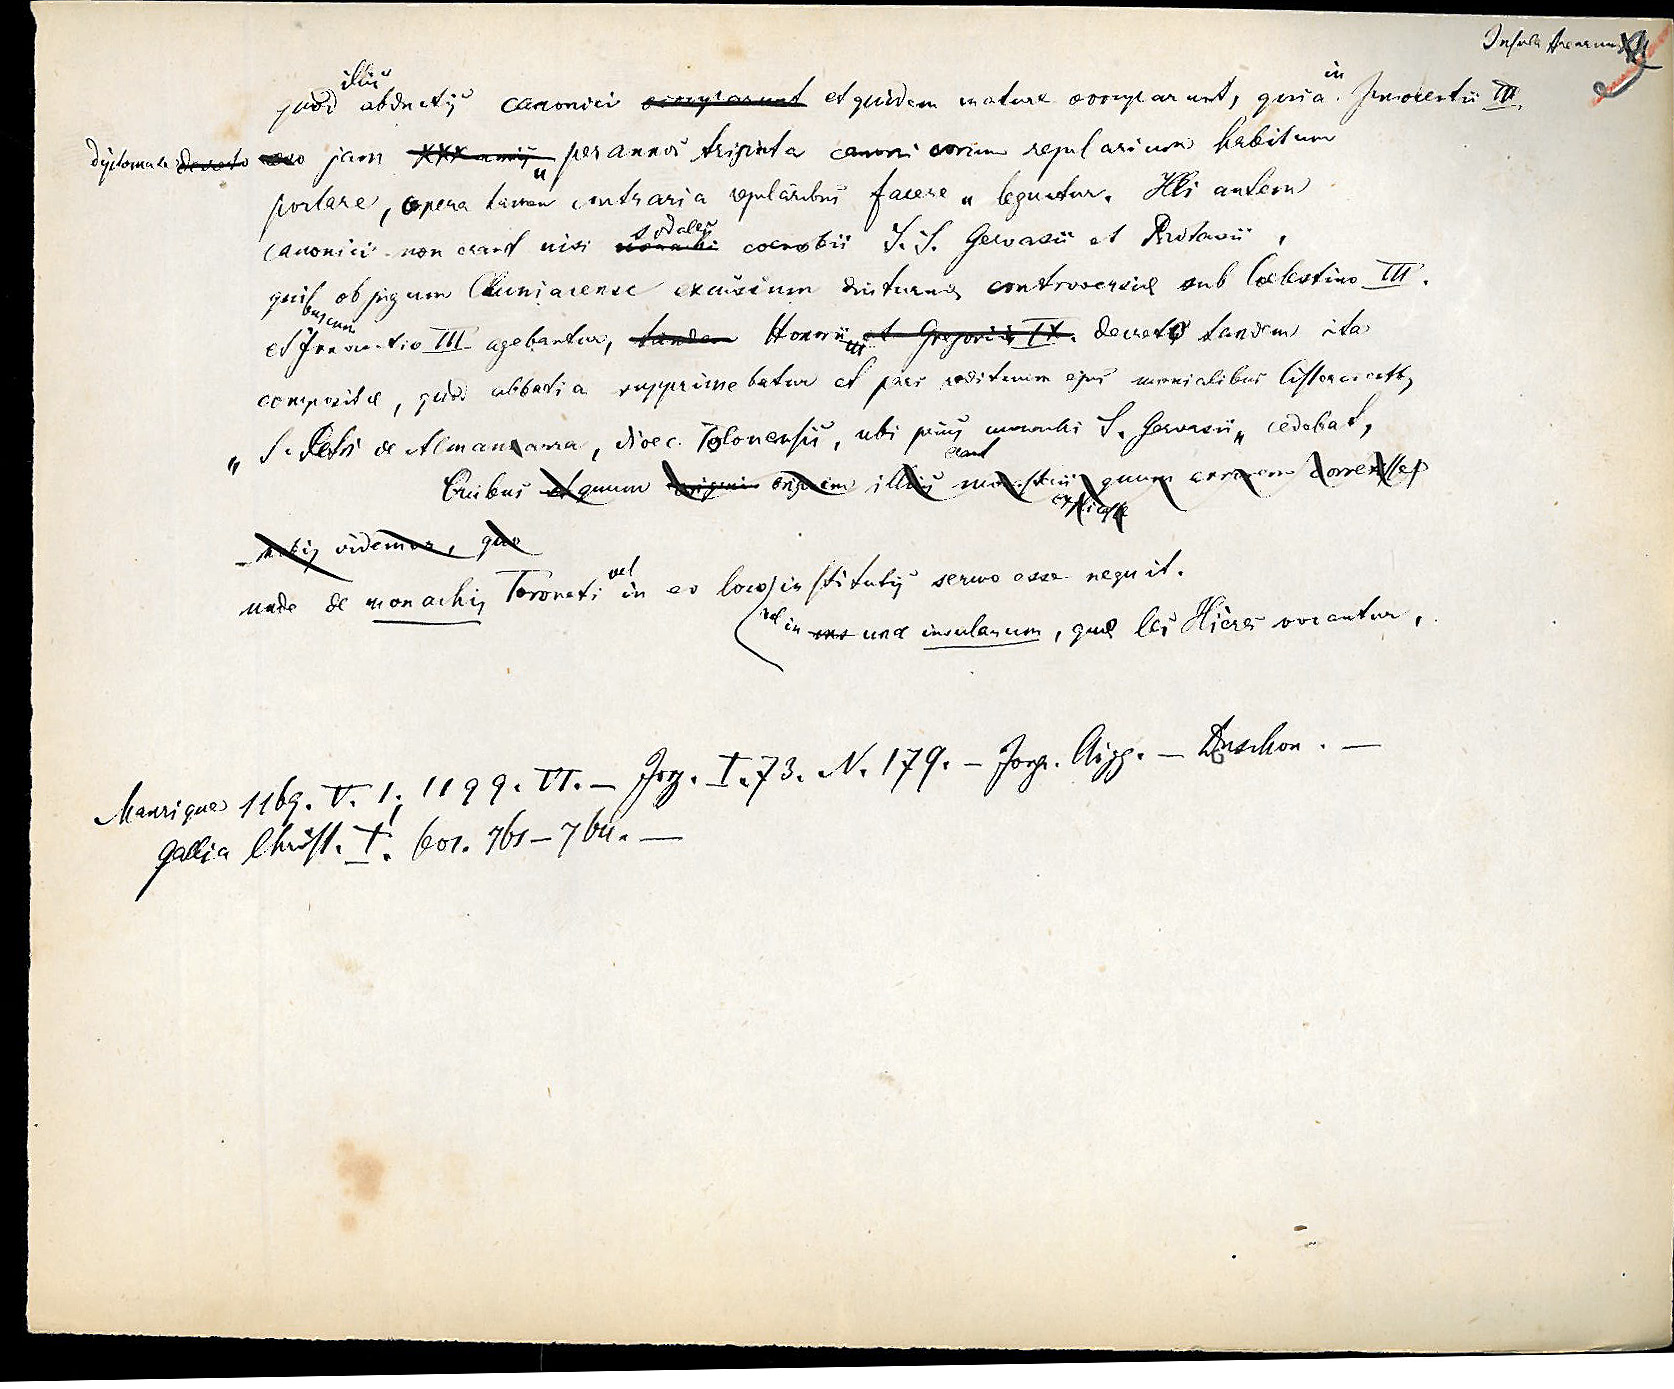 Insula Arearum
quod illis abductis canonici occuparunt et quidem mature occuparunt, quia in Innocentii III.
diplomate decreto jam XXX annis „ per annos triginta canonicorum regularium habitum
portare, opera tamen contraria regularibus facere „ leguntur. Illi autem
canonici non erant nisi monachi sodales coenobii S. S. Gervasii et Protasii,
quibuscum ob jugum Cluniacense excussum diuturnae controversiae sub Coelestino III.
et Innocentio III agebantur, tandem Honorii III et Gregorii IX. decreto tandem ita
compositae, quod abbatia supprimebatur et pars redituum ejus monialibus
„ S. Petri de Almanarra, dioec. Tolonensis, ubi prius monachi S. Gervasii erant „ cedebat,
quum originem illius quum errorem
videmur, quo
unde de monachis Toroneti vel in eo loco institutis sermo esse nequit.
vel in una insularum, quae les Hieres vocantur,
Manrique 1169. V. 1; 1199. VI. — Jong. I. 73. N. 179. — Jong. — 
Gallia Christ. I.